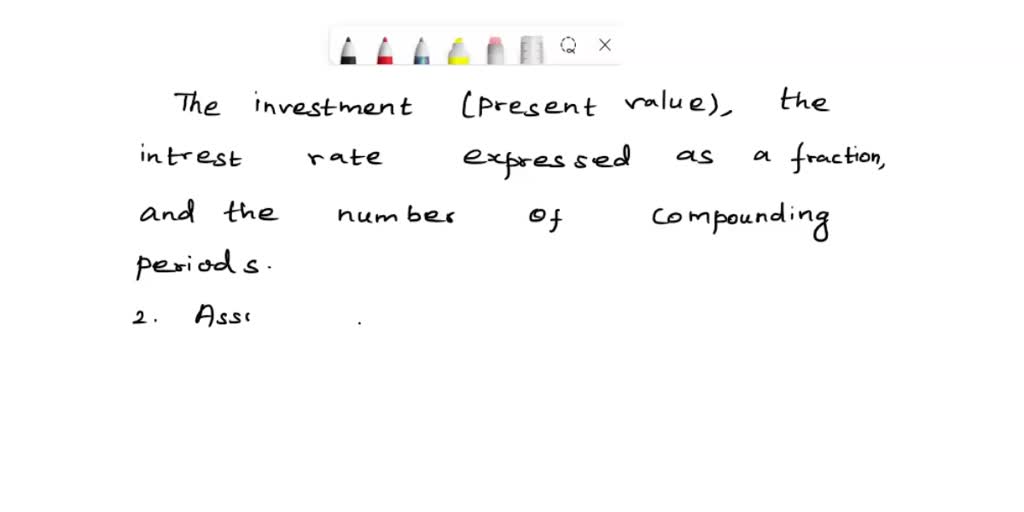 The investment (present value), the
intrest rate expressed as a fraction,
and the number of compounding
periods.
2. Ass